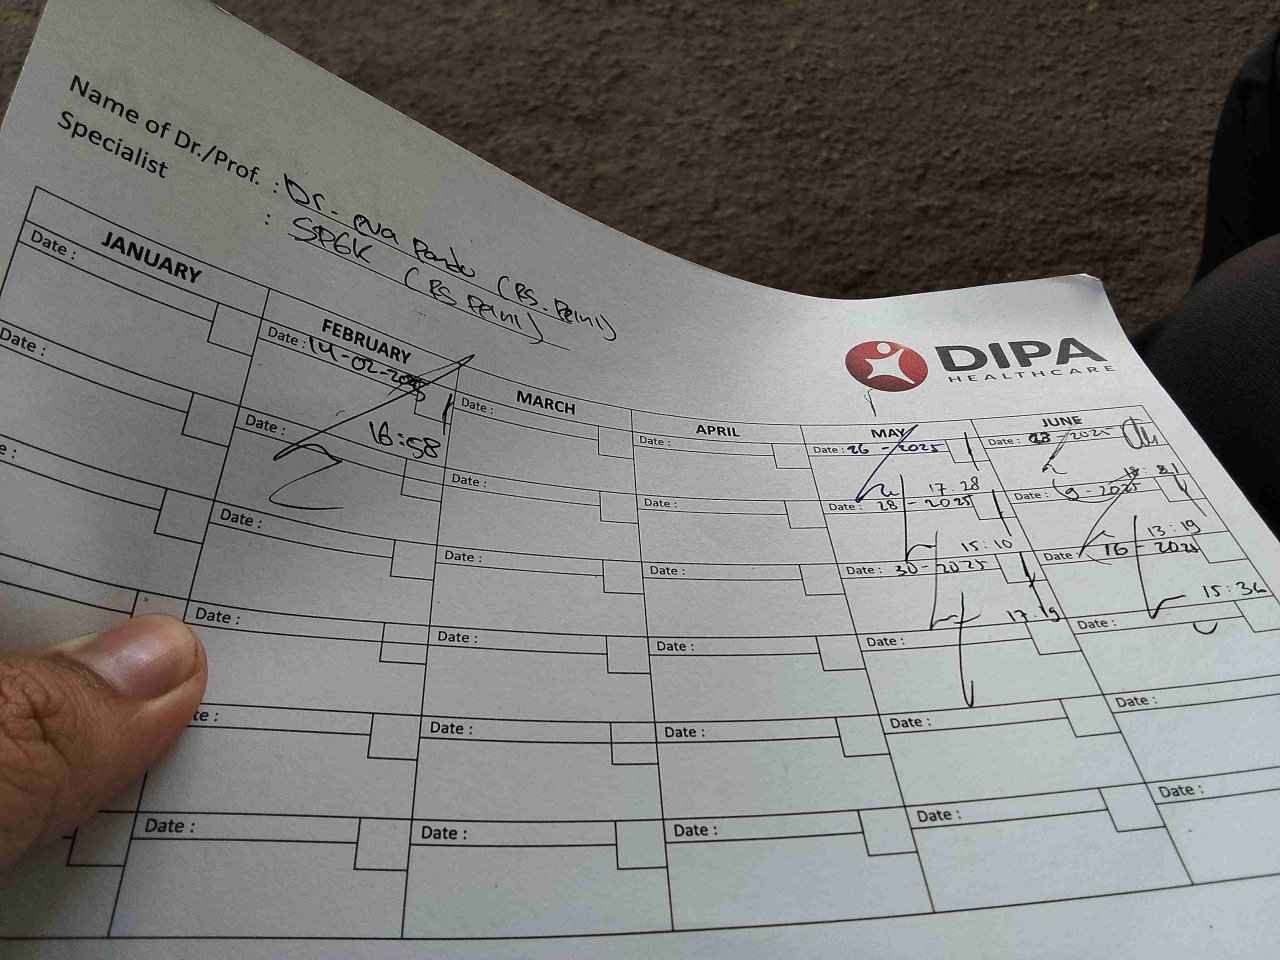 Name of Dr./Prof. : Dr. eva Pandu (RS. Pelni)
Specialist : SPGK (RS Pelni)
DIPA
HEALTHCARE
JANUARY
Date :
Date :
FEBRUARY
Date : 14-02-2025
16:58
Date :
Date :
Date :
Date :
MARCH
Date :
Date :
Date :
Date :
Date :
Date :
APRIL
Date :
Date :
Date :
Date :
Date :
Date :
MAY
Date : 26 - 2025
17 28
Date : 28 - 2025
15:10
Date : 30 - 2025
17:19
Date :
Date :
Date :
JUNE
Date : - 2025
Date : 9 - 2025
13:19
Date : 16 - 2025
15:36
Date :
Date :
Date :